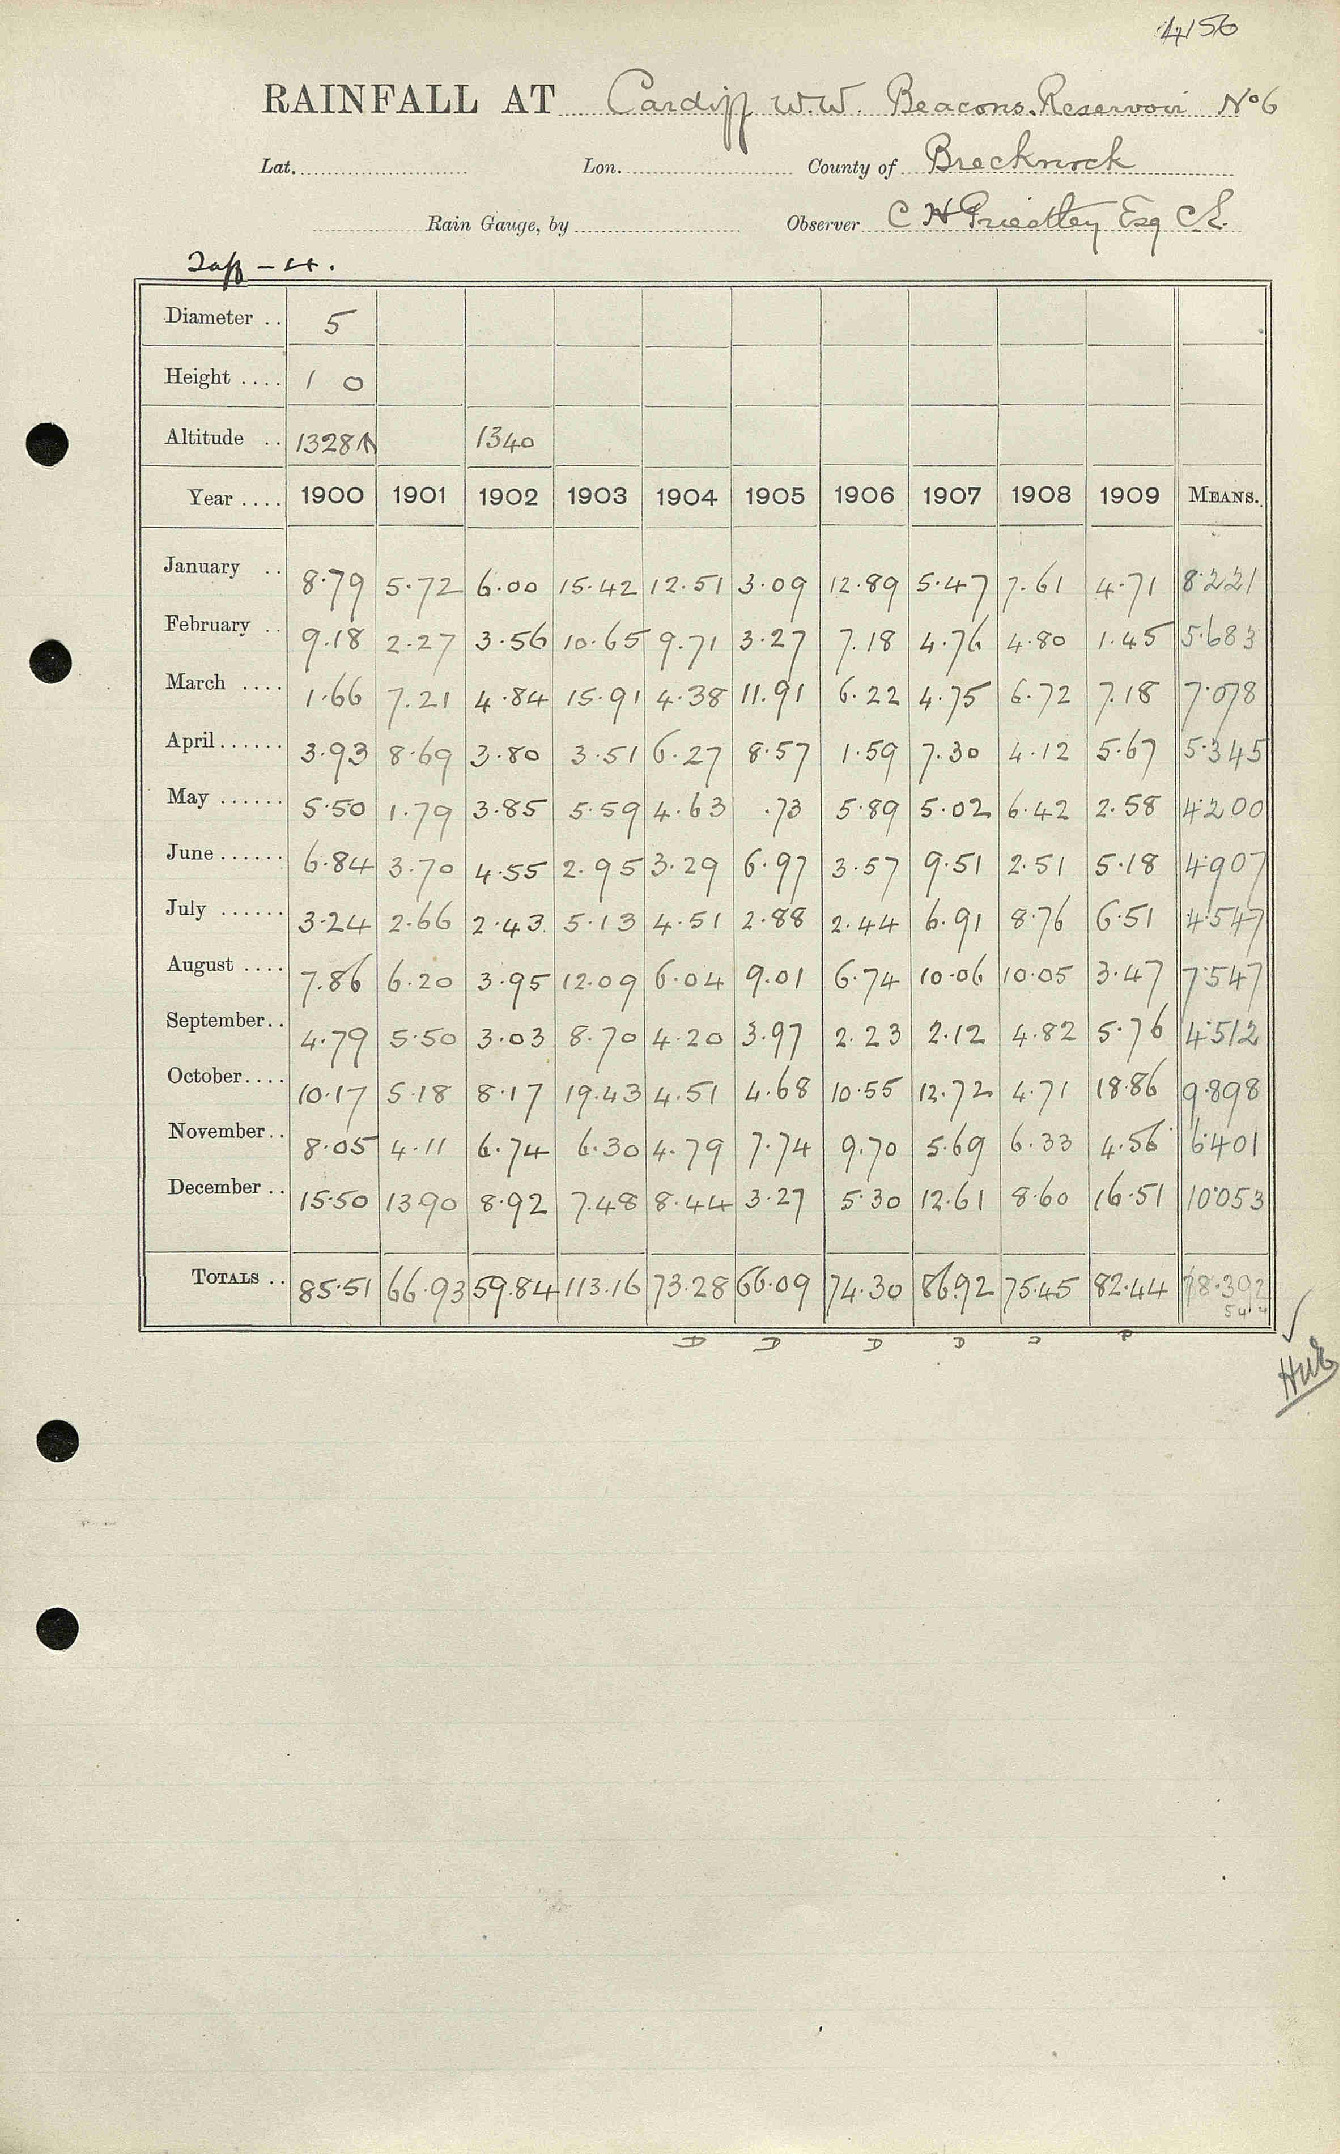 4156
RAINFALL AT Cardiff W.W. Beacons. Reservoir No 6
Lat. Lon. County of Brecknock
Rain Gauge, by Observer C H Priestley Esq C.E.
Taff - 4.
Diameter .. 5
Height .... 1 0
Altitude .. 1328 1340
Year .... 1900 1901 1902 1903 1904 1905 1906 1907 1908 1909 MEANS.
January .. 8.79 5.72 6.00 15.42 12.51 3.09 12.89 5.47 7.61 4.71 8.221
February .. 9.18 2.27 3.56 10.65 9.71 3.27 7.18 4.76 4.80 1.45 5.683
March .... 1.66 7.21 4.84 15.91 4.38 11.91 6.22 4.75 6.72 7.18 7.078
April...... 3.93 8.69 3.80 3.51 6.27 8.57 1.59 7.30 4.12 5.67 5.345
May ...... 5.50 1.79 3.85 5.59 4.63 .73 5.89 5.02 6.42 2.58 4.200
June...... 6.84 3.70 4.55 2.95 3.29 6.97 3.57 9.51 2.51 5.18 4.907
July ...... 3.24 2.66 2.43 5.13 4.51 2.88 2.44 6.91 8.76 6.51 4.547
August .... 7.86 6.20 3.95 12.09 6.04 9.01 6.74 10.06 10.05 3.47 7.547
September.. 4.79 5.50 3.03 8.70 4.20 3.97 2.23 2.12 4.82 5.76 4.512
October.... 10.17 5.18 8.17 19.43 4.51 4.68 10.55 12.72 4.71 18.86 9.898
November.. 8.05 4.11 6.74 6.30 4.79 7.74 9.70 5.69 6.33 4.56 6.401
December .. 15.50 13.90 8.92 7.48 8.44 3.27 5.30 12.61 8.60 16.51 10.053
TOTALS .. 85.51 66.93 59.84 113.16 73.28 66.09 74.30 86.92 75.45 82.44 78.392
D D D D D P